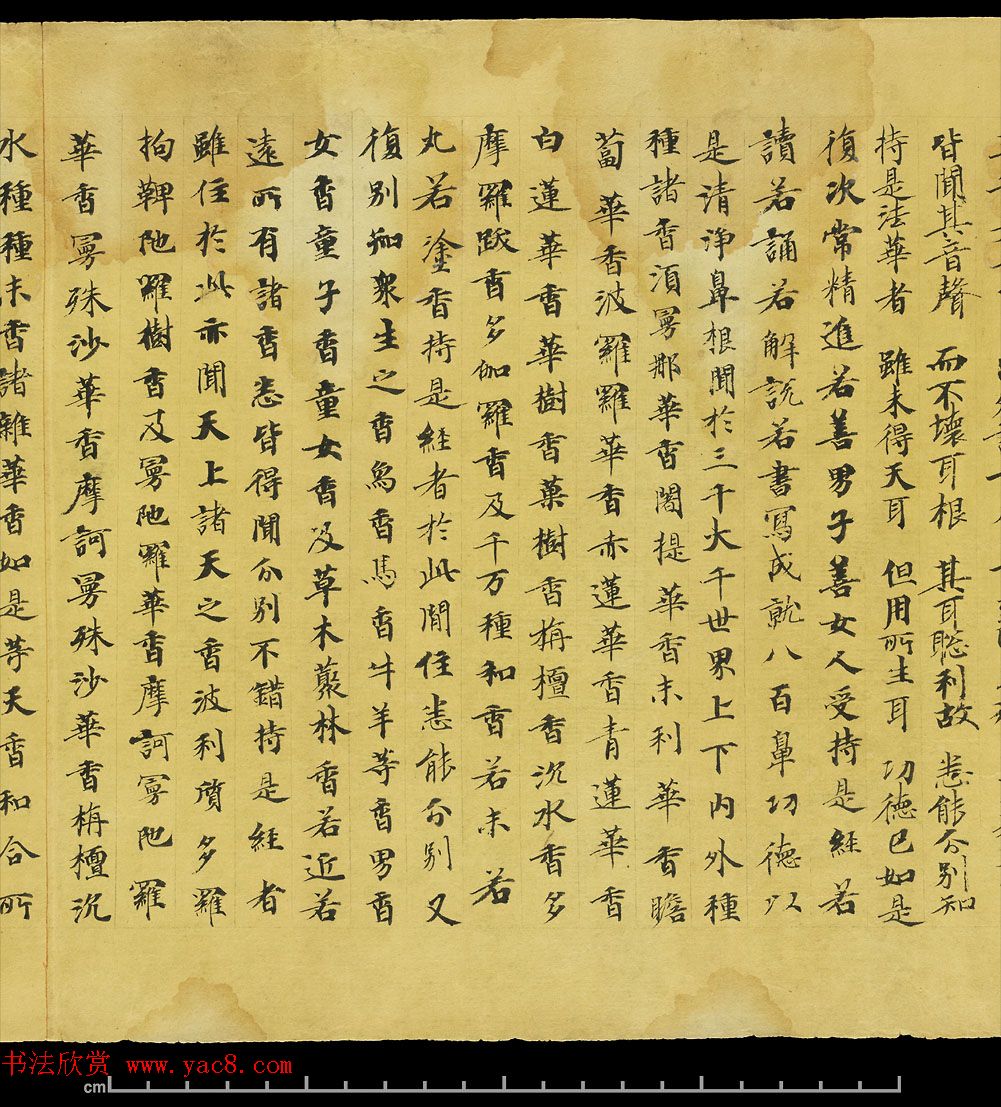 皆聞其音聲 而不壞耳根 其耳聦利故 悉能分別知
持是法華者 雖未得天耳 但用所生耳 功德已如是
復次常精進若善男子善女人受持是經若
讀若誦若解説若書寫成就八百鼻功德以
是清淨鼻根聞於三千大千世界上下内外種
種諸香湏曼那華香闍提華香末利華香瞻
蔔華香波羅羅華香赤蓮華香青蓮華香
白蓮華香華樹香菓樹香栴檀香沉水香多
摩羅跋香多伽羅香及千万種和香若末若
丸若塗香持是經者於此間住悉能分別又
復別知衆生之香烏香馬香牛羊等香男香
女香童子香童女香及草木藂林香若近若
遠所有諸香悉皆得聞分別不錯持是經者
雖住於此亦聞天上諸天之香波利質多羅
拘鞞陁羅樹香及曼陁羅華香摩訶曼陁羅
華香曼殊沙華香摩訶曼殊沙華香栴檀沉
水種種末香諸雜華香如是等天香和合所
书法欣赏 www.yac8.com
cm